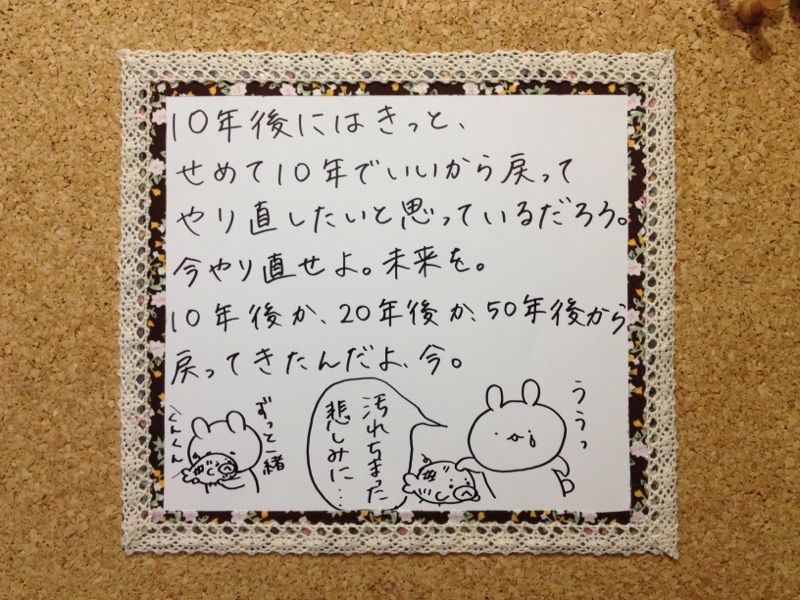 10年後にはきっと、
せめて10年でいいから戻って
やり直したいと思っているだろう。
今やり直せよ。未来を。
10年後か、20年後か、50年後から
戻ってきたんだよ、今。
ずっと一緒
くんくん
汚れちまった
悲しみに…
ううっ